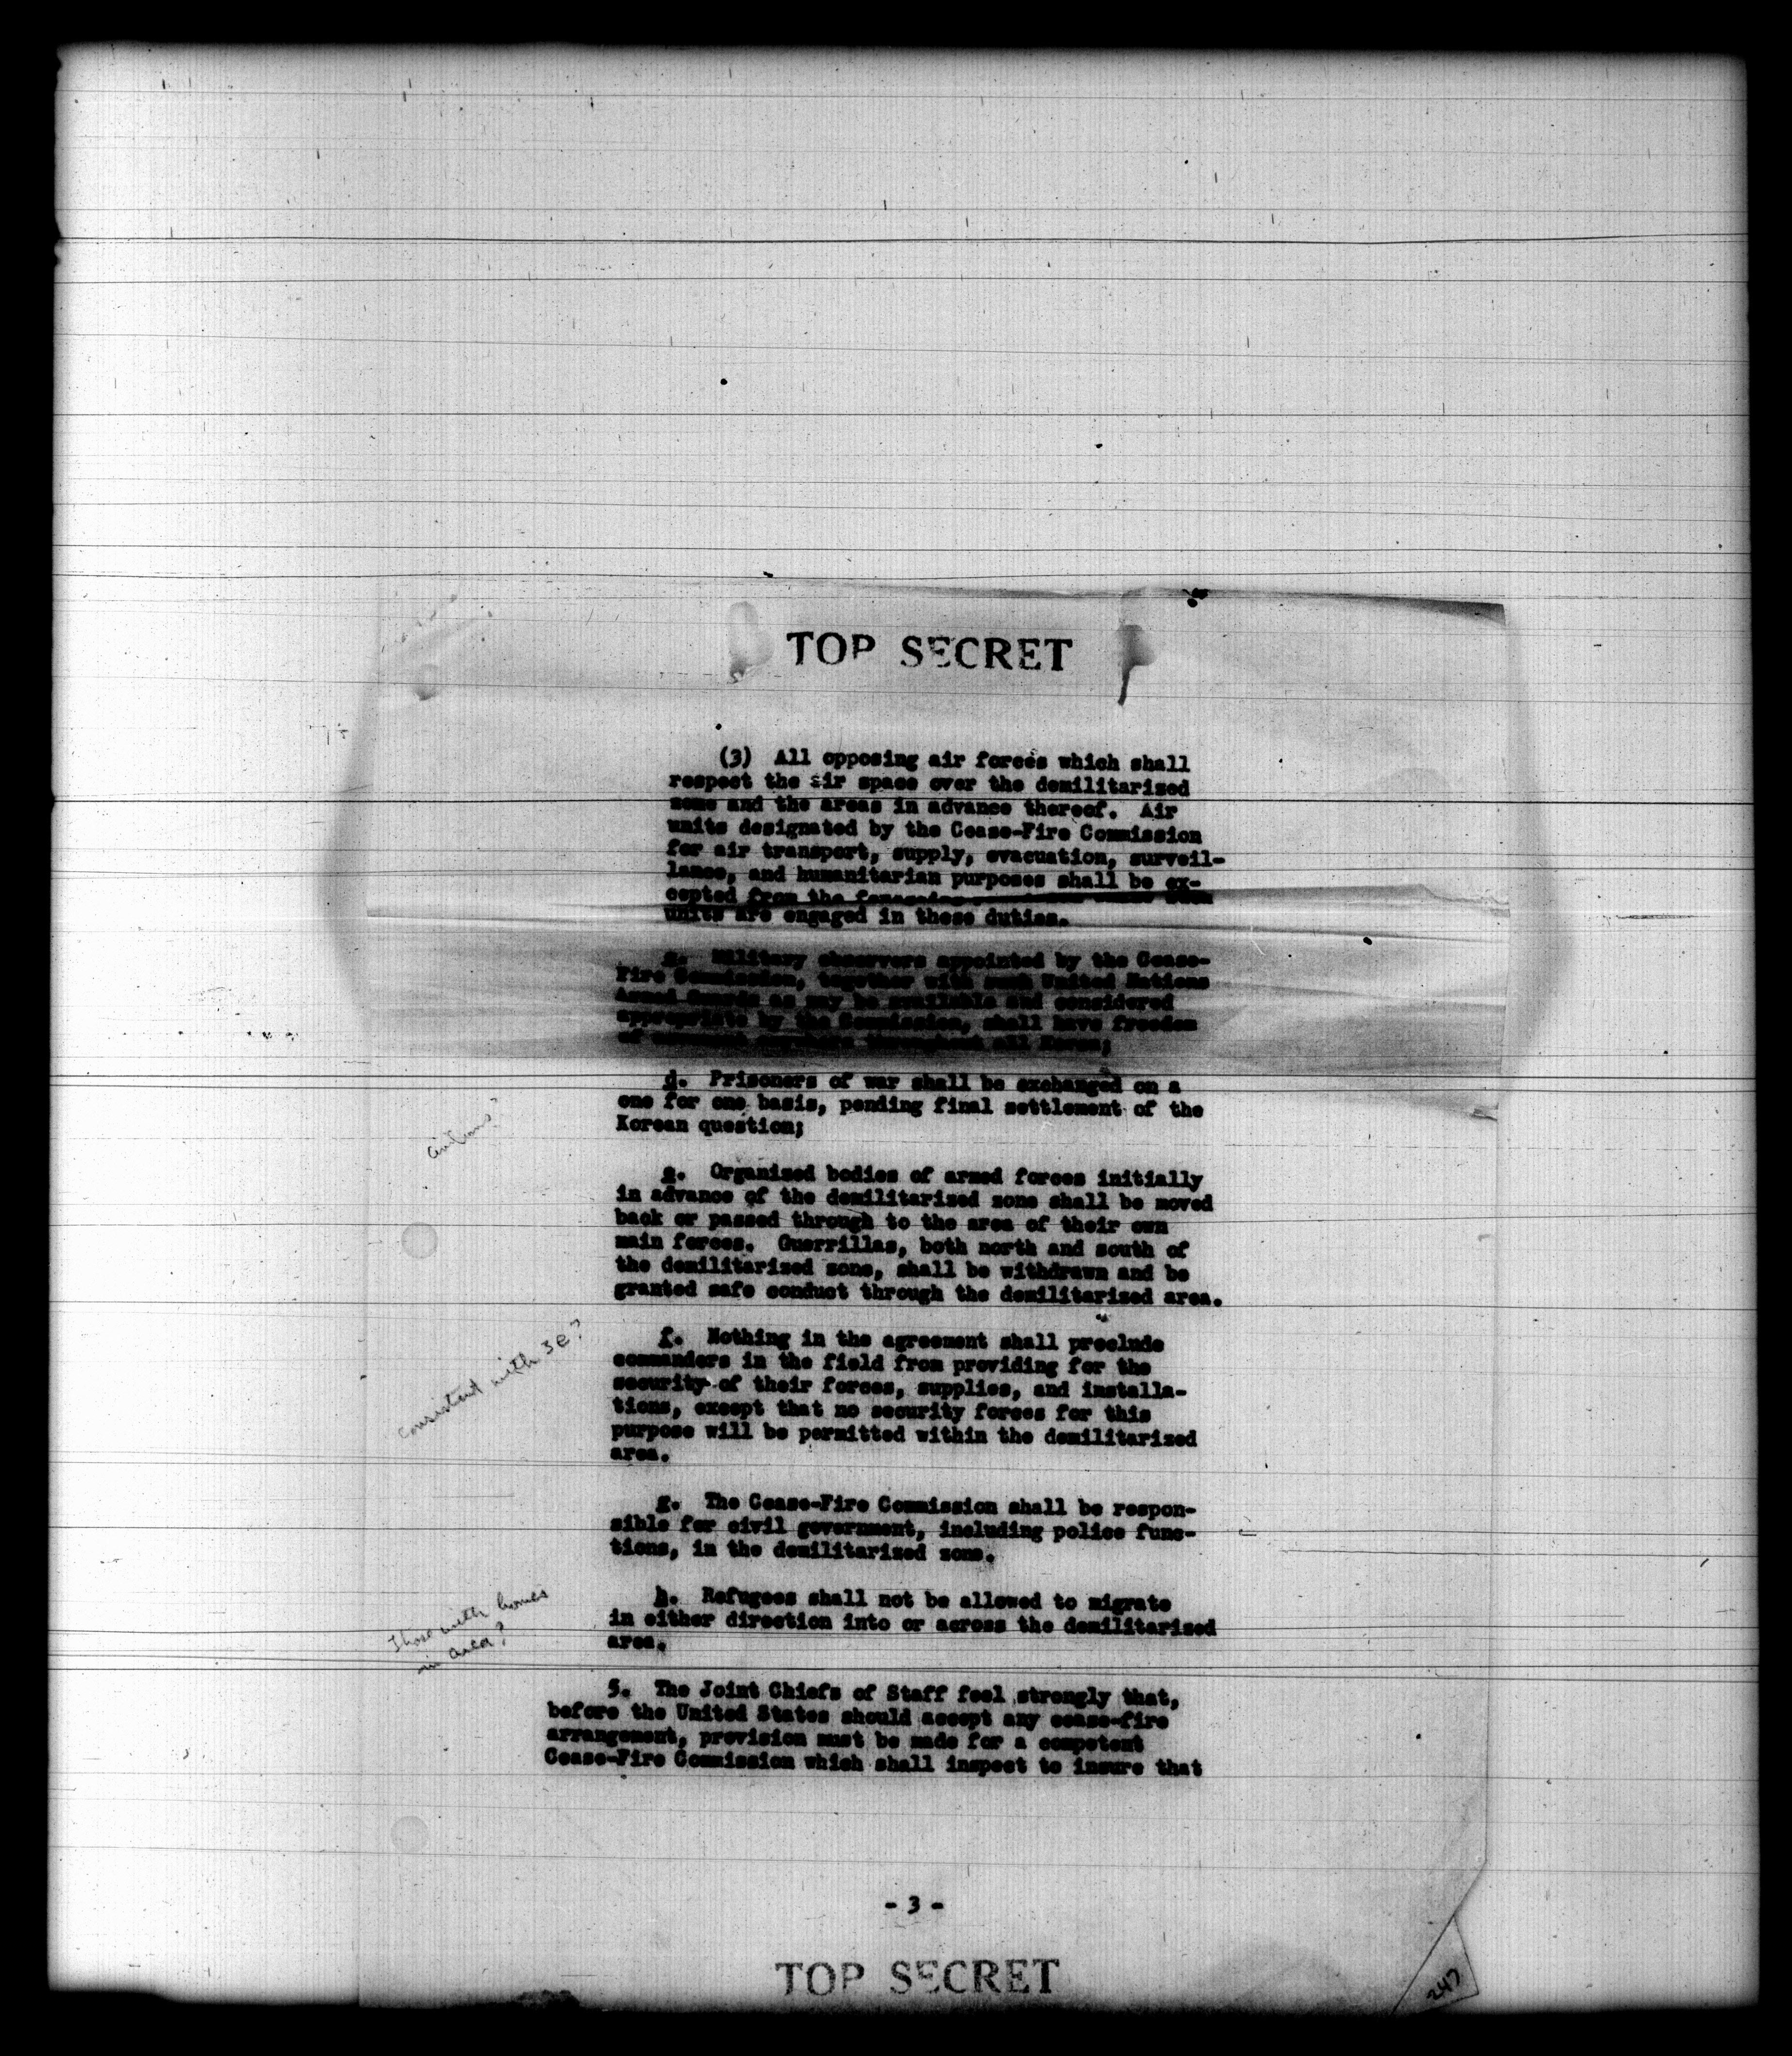 TOP SECRET
(3) All opposing air forces which shall
respect the air space over the demilitarized
zone and the areas in advance thereof. Air
units designated by the Cease-Fire Commission
for air transport, supply, evacuation, surveil-
lance, and humanitarian purposes shall be ex-
cepted from the foregoing such
units are engaged in these duties.
c. Military observers appointed by the Cease-
Fire Commission, together with such United Nations
Armed Guards as may be available and considered
appropriate by the Commission, shall have freedom
of movement anywhere throughout all Korea;
d. Prisoners of war shall be exchanged on a
one for one basis, pending final settlement of the
Korean question;
e. Organized bodies of armed forces initially
in advance of the demilitarized zone shall be moved
back or passed through to the area of their own
main forces. Guerrillas, both north and south of
the demilitarized zone, shall be withdrawn and be
granted safe conduct through the demilitarized area.
consistent with 3e?
f. Nothing in the agreement shall preclude
commanders in the field from providing for the
security of their forces, supplies, and installa-
tions, except that no security forces for this
purpose will be permitted within the demilitarized
area.
g. The Cease-Fire Commission shall be respon-
sible for civil government, including police func-
tions, in the demilitarized zone.
Those with homes
in area?
h. Refugees shall not be allowed to migrate
in either direction into or across the demilitarized
area.
5. The Joint Chiefs of Staff feel strongly that,
before the United States should accept any cease-fire
arrangement, provision must be made for a competent
Cease-Fire Commission which shall inspect to insure that
- 3 -
TOP SECRET
247